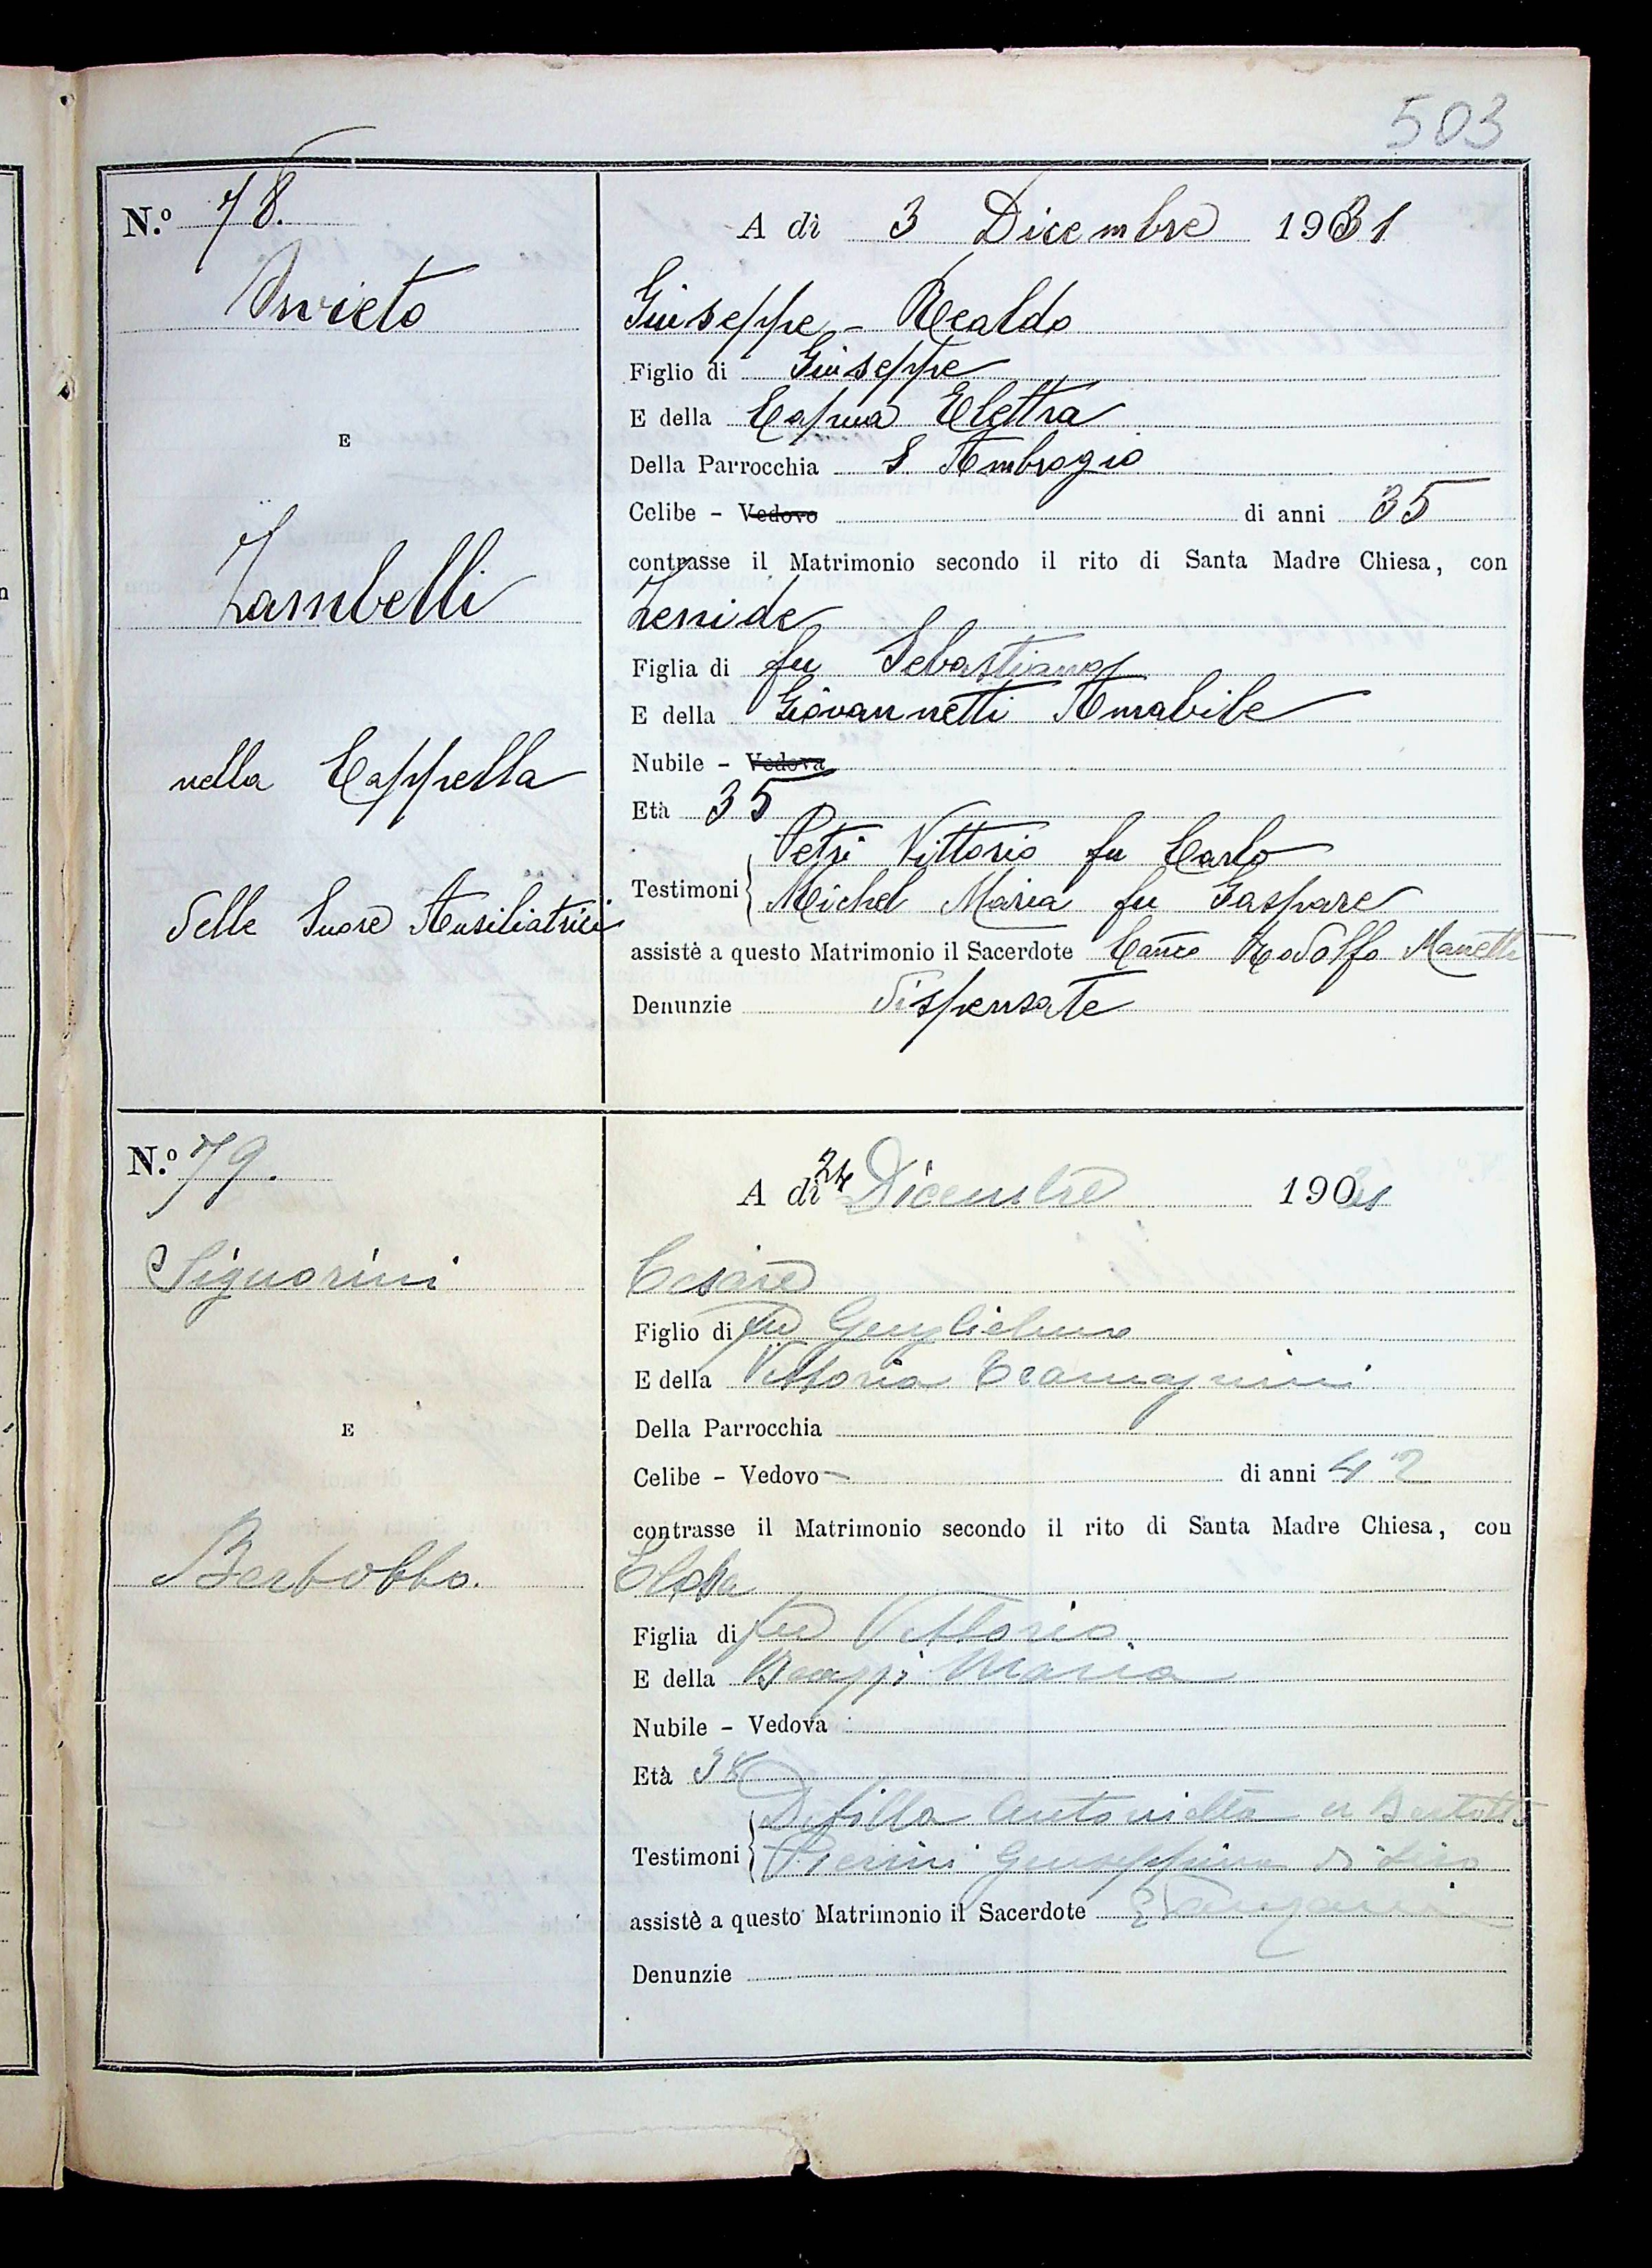 503
N.º 78.
A dì 3 Dicembre 1931
Giuseppe - Realdo
Figlio di Giuseppe
E della Capua Elettra
Della Parrocchia S Ambrogio
Celibe - Vedovo di anni 35
contrasse il Matrimonio secondo il rito di Santa Madre Chiesa, con
Zenide
Figlia di fu Sebastiano
E della Giovannetti Amabile
Nubile - Vedova
Età 35
Testimoni
Petri Vittorio fu Carlo
Michel Maria fu Gaspare
assistè a questo Matrimonio il Sacerdote Canco Rodolfo Manetti
Denunzie dispensate
E
Zambelli
nella Cappella
delle Suore Ausiliatrici
N.º 79.
A dì 24 Dicembre 1931
Signorini
Cesare
Figlio di fu Guglielmo
E della Vittoria
Della Parrocchia
Celibe - Vedovo di anni 42
contrasse il Matrimonio secondo il rito di Santa Madre Chiesa, con
E
Figlia di fu Vittorio
E della Maria
Nubile - Vedova
Età 38
Testimoni
Antonietta
Pierini Giuseppina di
assistè a questo Matrimonio il Sacerdote
Denunzie